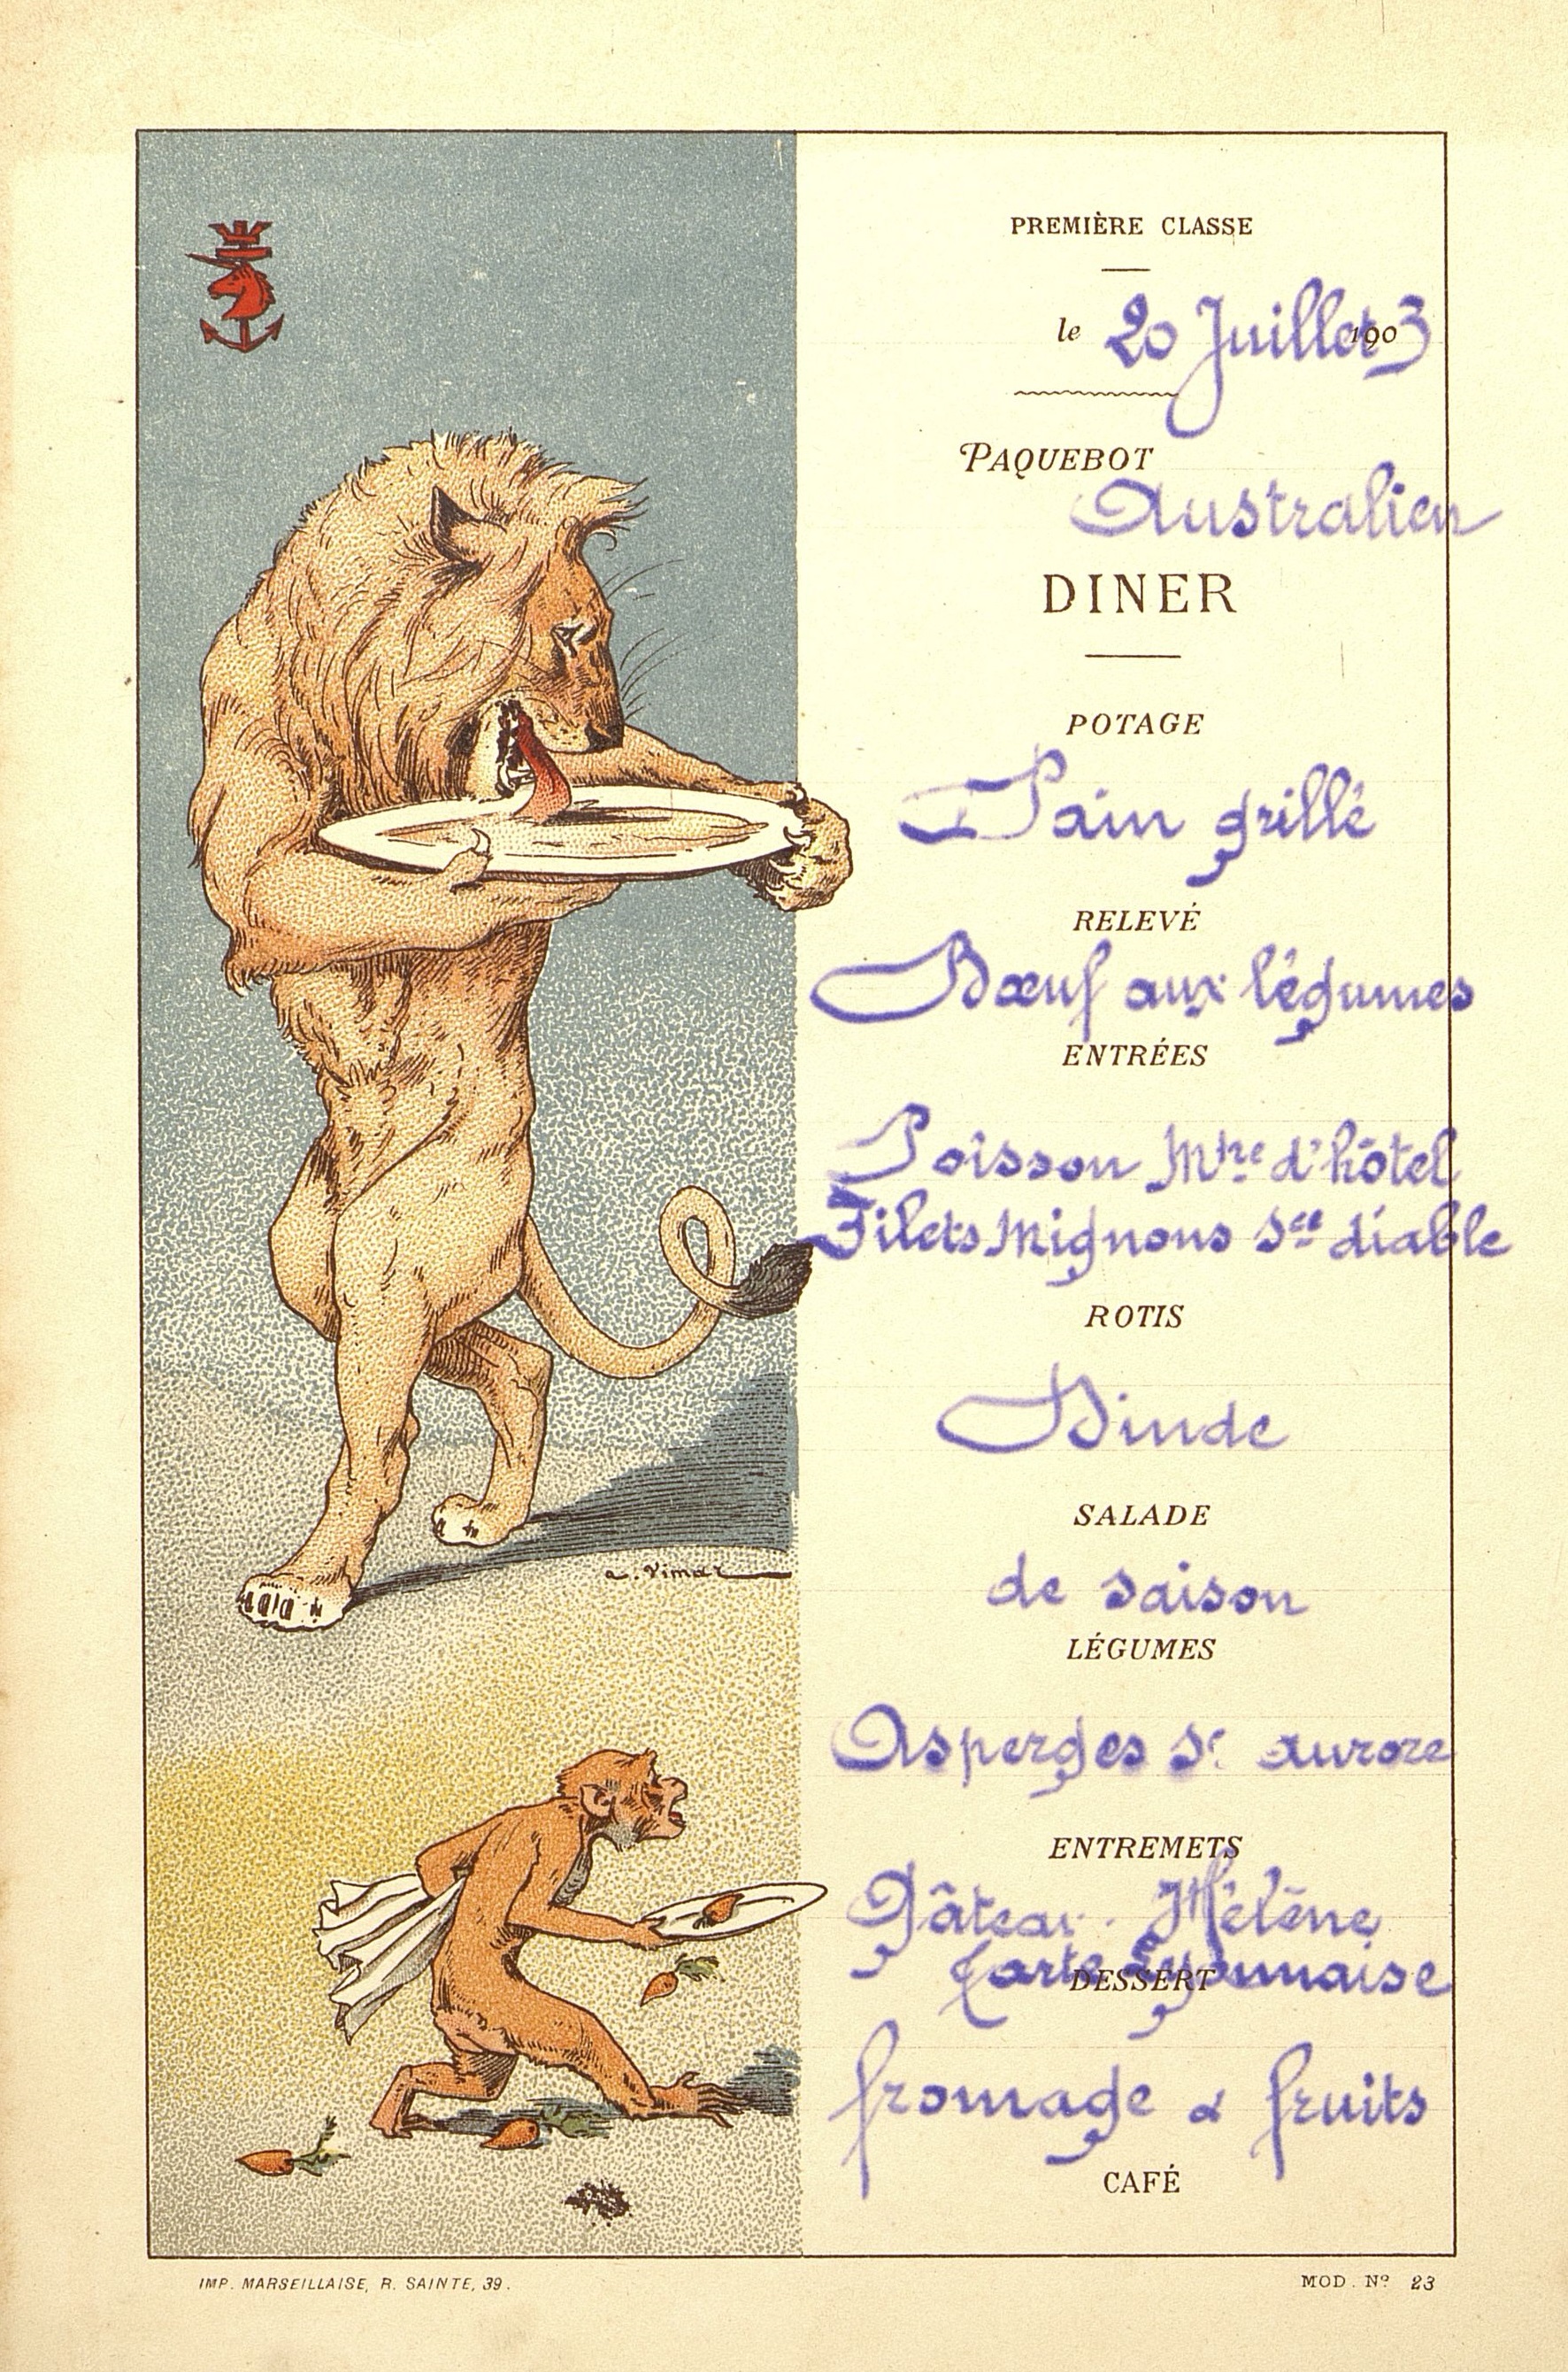 PREMIÈRE CLASSE
le 20 Juillet 1903
PAQUEBOT
Australien
DINER
POTAGE
Pain grillé
RELEVÉ
Bœuf aux légumes
ENTRÉES
Poisson Mtre d'hôtel
Filets Mignons Sce diable
ROTIS
Dinde
SALADE
de saison
LÉGUMES
a. Vimar
Asperges Se aurore
ENTREMETS
Gâteau Hélène
Tarte Lyonnaise
DESSERT
fromage & fruits
CAFÉ
IMP. MARSEILLAISE, R. SAINTE, 39.
MOD. Nº 23